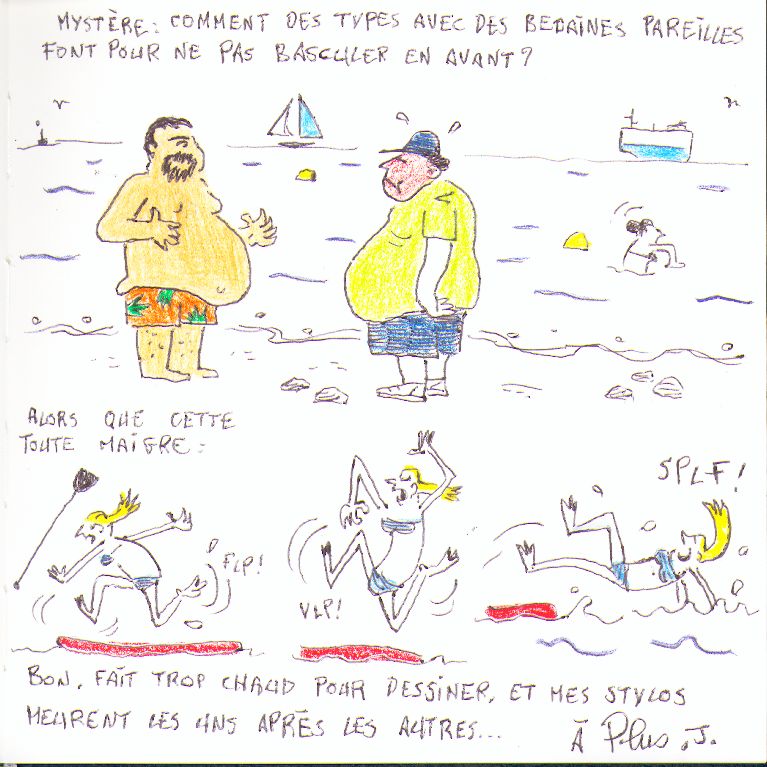 MYSTÈRE: COMMENT DES TYPES AVEC DES BEDAINES PAREILLES
FONT POUR NE PAS BASCULER EN AVANT?
ALORS QUE CETTE
TOUTE MAIGRE:
SPLF!
FLP!
VLP!
BON, FAIT TROP CHAUD POUR DESSINER, ET MES STYLOS
MEURENT LES UNS APRÈS LES AUTRES...
À Plus, J.